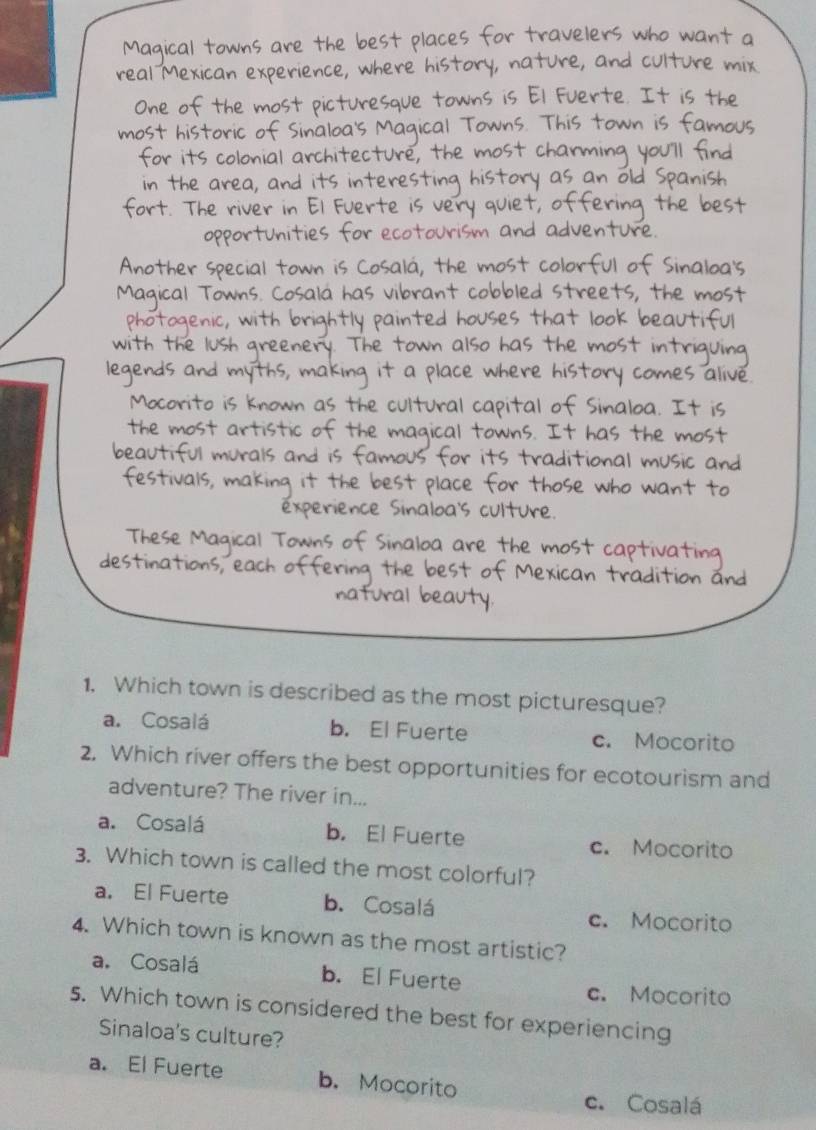 Magical towns are the best places for travelers who want a
real Mexican experience, where history, nature, and culture mix.
One of the most picturesque towns is El Fuerte. It is the
most historic of Sinaloa's Magical Towns. This town is famous
for its colonial architecture, the most charming you'll find
in the area, and its interesting history as an old Spanish
fort. The river in El Fuerte is very quiet, offering the best
opportunities for ecotourism and adventure.
Another special town is Cosalá, the most colorful of Sinaloa's
Magical Towns. Cosalá has vibrant cobbled streets, the most
photogenic, with brightly painted houses that look beautiful
with the lush greenery. The town also has the most intriguing
legends and myths, making it a place where history comes alive.
Mocorito is known as the cultural capital of Sinaloa. It is
the most artistic of the magical towns. It has the most
beautiful murals and is famous for its traditional music and
festivals, making it the best place for those who want to
experience Sinaloa's culture.
These Magical Towns of Sinaloa are the most captivating
destinations, each offering the best of Mexican tradition and
natural beauty.
1. Which town is described as the most picturesque?
a. Cosalá b. El Fuerte c. Mocorito
2. Which river offers the best opportunities for ecotourism and
adventure? The river in...
a. Cosalá b. El Fuerte c. Mocorito
3. Which town is called the most colorful?
a. El Fuerte b. Cosalá c. Mocorito
4. Which town is known as the most artistic?
a. Cosalá b. El Fuerte c. Mocorito
5. Which town is considered the best for experiencing
Sinaloa's culture?
a. El Fuerte b. Mocorito c. Cosalá